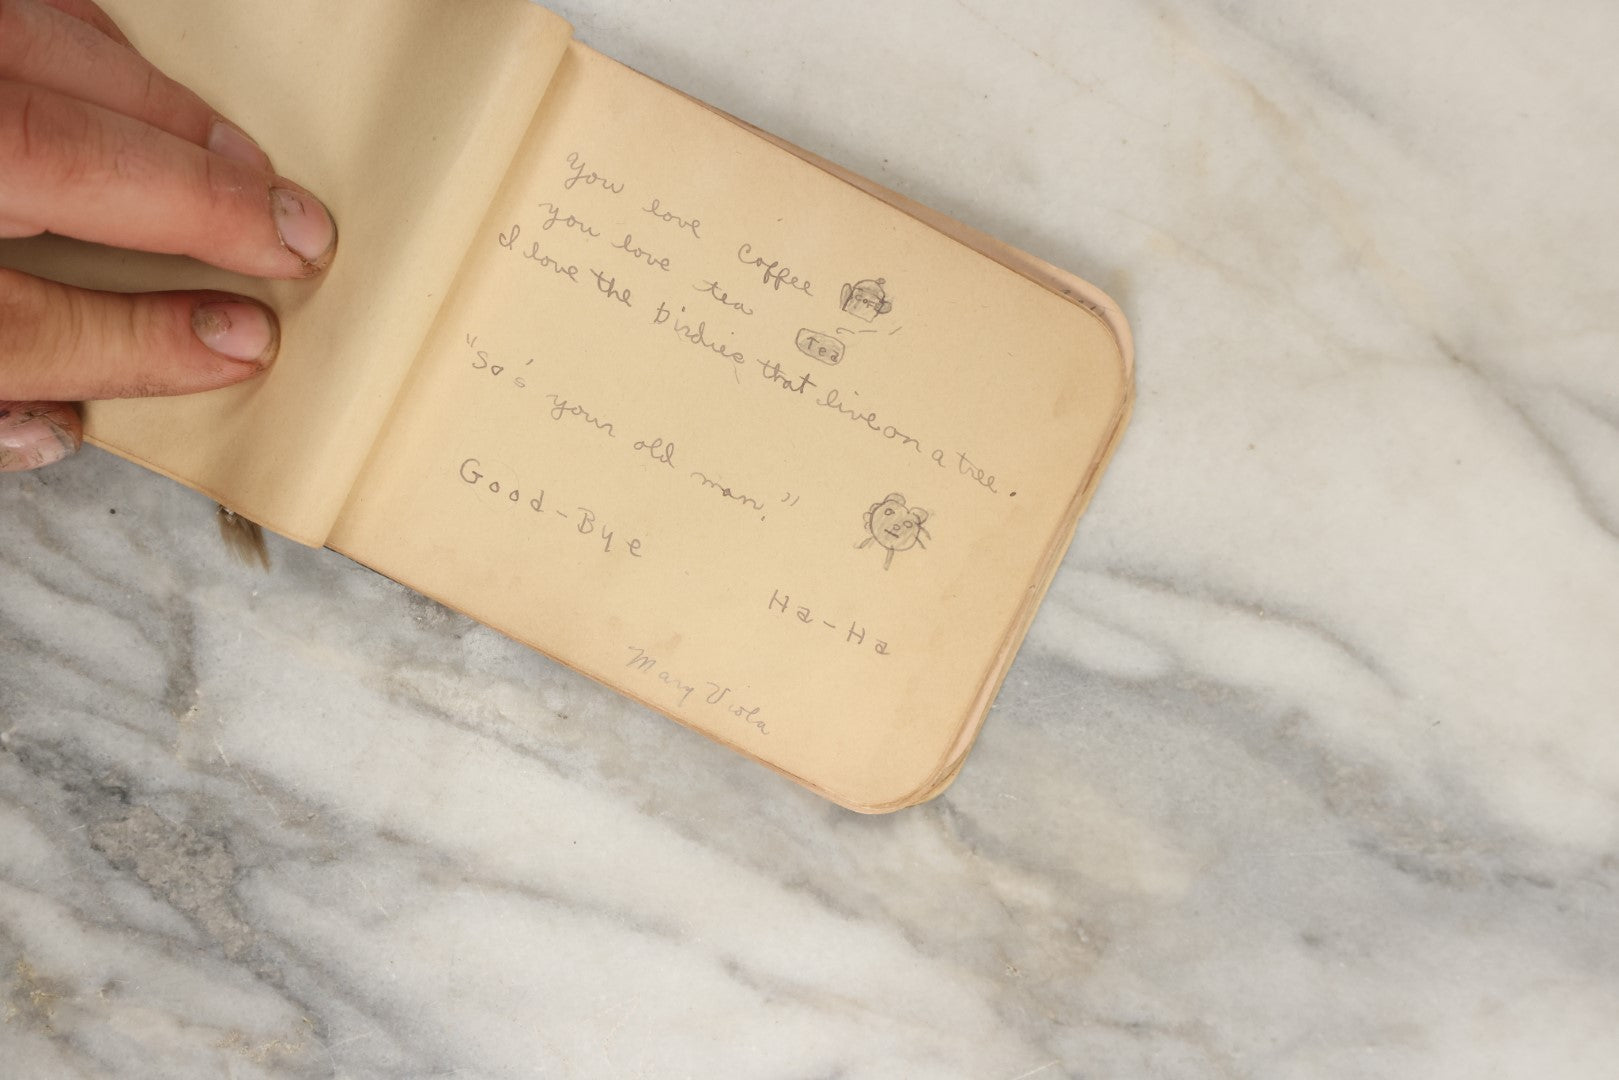 You love coffee
you love tea
Tea
I love the birdies that live on a tree.
"So's your old man."
Good-Bye
Ha-Ha
Mary Viola